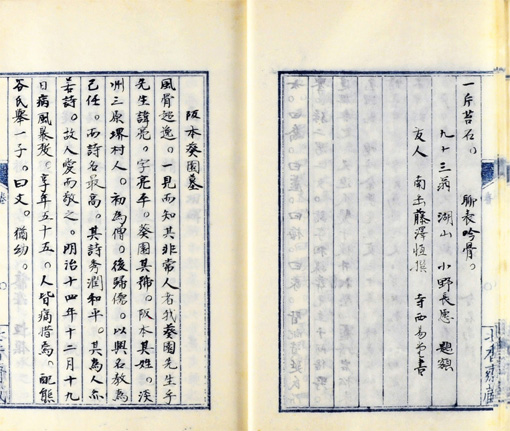 一片苔石。　聊表吟骨。
九十三翁　湖山　小野長愿　題額
友人　南岳藤澤恒撰　寺西易堂書
阪本葵園墓
風骨超逸。一見而知其非常人者我葵園先生乎
先生諱亮。字亮平。葵園其號。阪本其姓。淡
州三原堺村人。初為僧。後歸儒。以興名教為
己任。而詩名最高。其詩秀潤和平。其為人亦
若詩。故人愛而敬之。明治十四年十二月十九
日病風暴發。享年五十五。人皆痛惜焉。配熊
谷氏舉一子。曰文。猶幼。